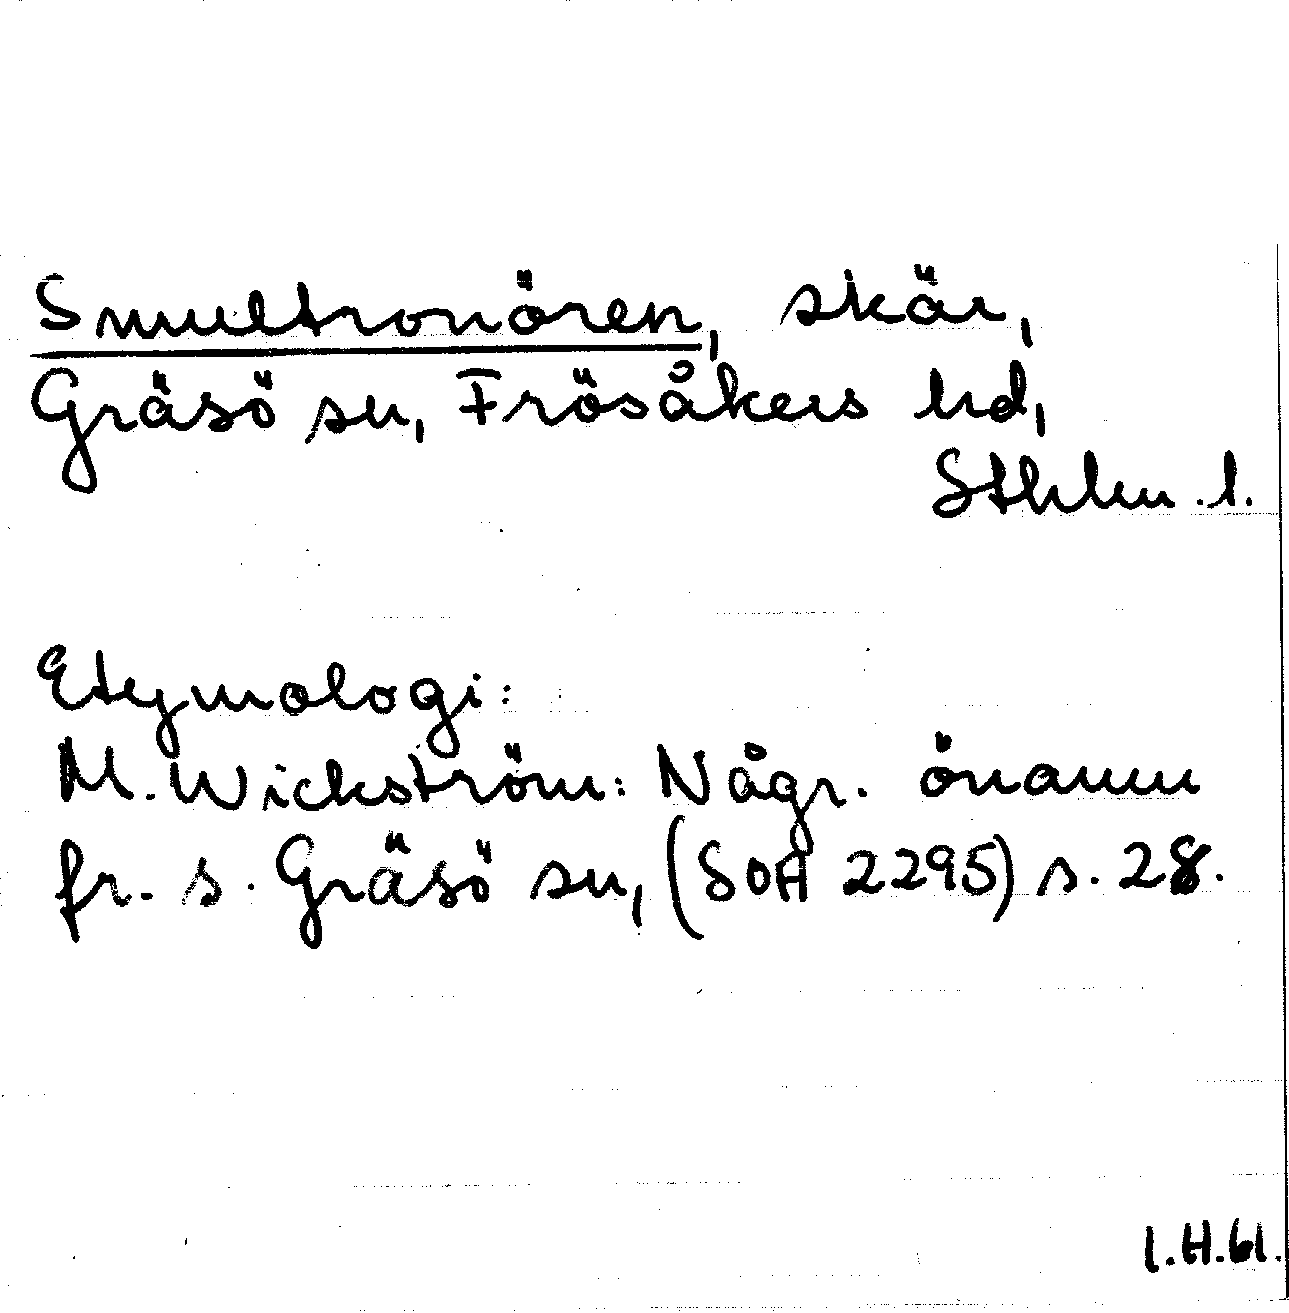 Smultronören, skär,
Gräsö sn, Frösåkers hrd,
Sthlm. l.
Etymologi:
M. Wickström: Någr. önamn
fr. s. Gräsö sn, (SOA 2295) s. 28.
I.H.61.